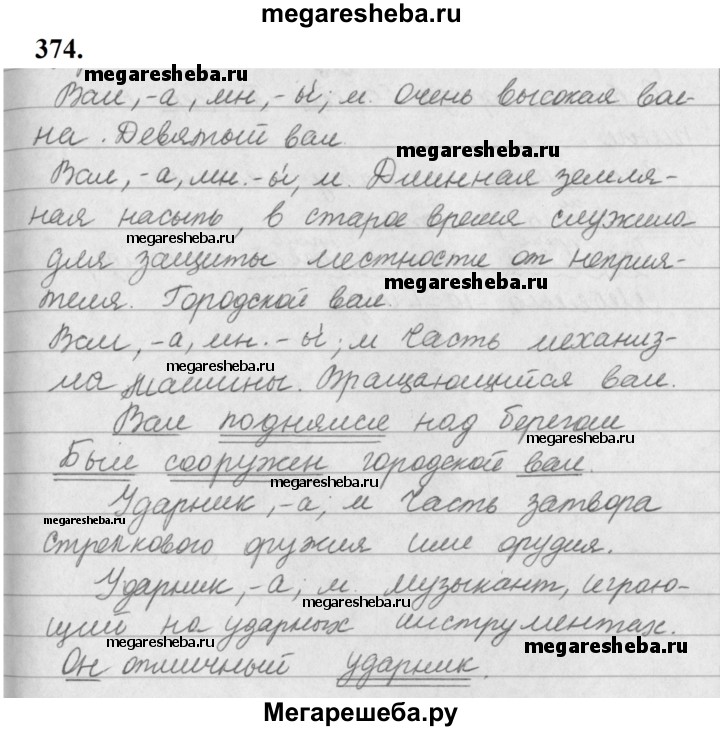 megaresheba.ru
374.
megaresheba.ru
Вал, -а, мн, -ы́; м. Очень высокая вол-
на. Девятый вал.
megaresheba.ru
Вал, -а, мн. -ы́, м. Длинная земля-
ная насыпь, в старое время служило
megaresheba.ru
для защиты местности от неприя-
megaresheba.ru
теля. Городской вал.
Вал, -а, мн. -ы́; м Часть механиз-
megaresheba.ru
ма машины. Вращающийся вал.
Вал поднялся над берегом
megaresheba.ru
Был сооружен городской вал.
megaresheba.ru
Ударник, -а; м Часть затвора
megaresheba.ru
стрелкового оружия или орудия.
Ударник, -а; м. музыкант, играю-
megaresheba.ru
щий на ударных инструментах.
megaresheba.ru
Он отличный ударник.
Мегарешеба.ру